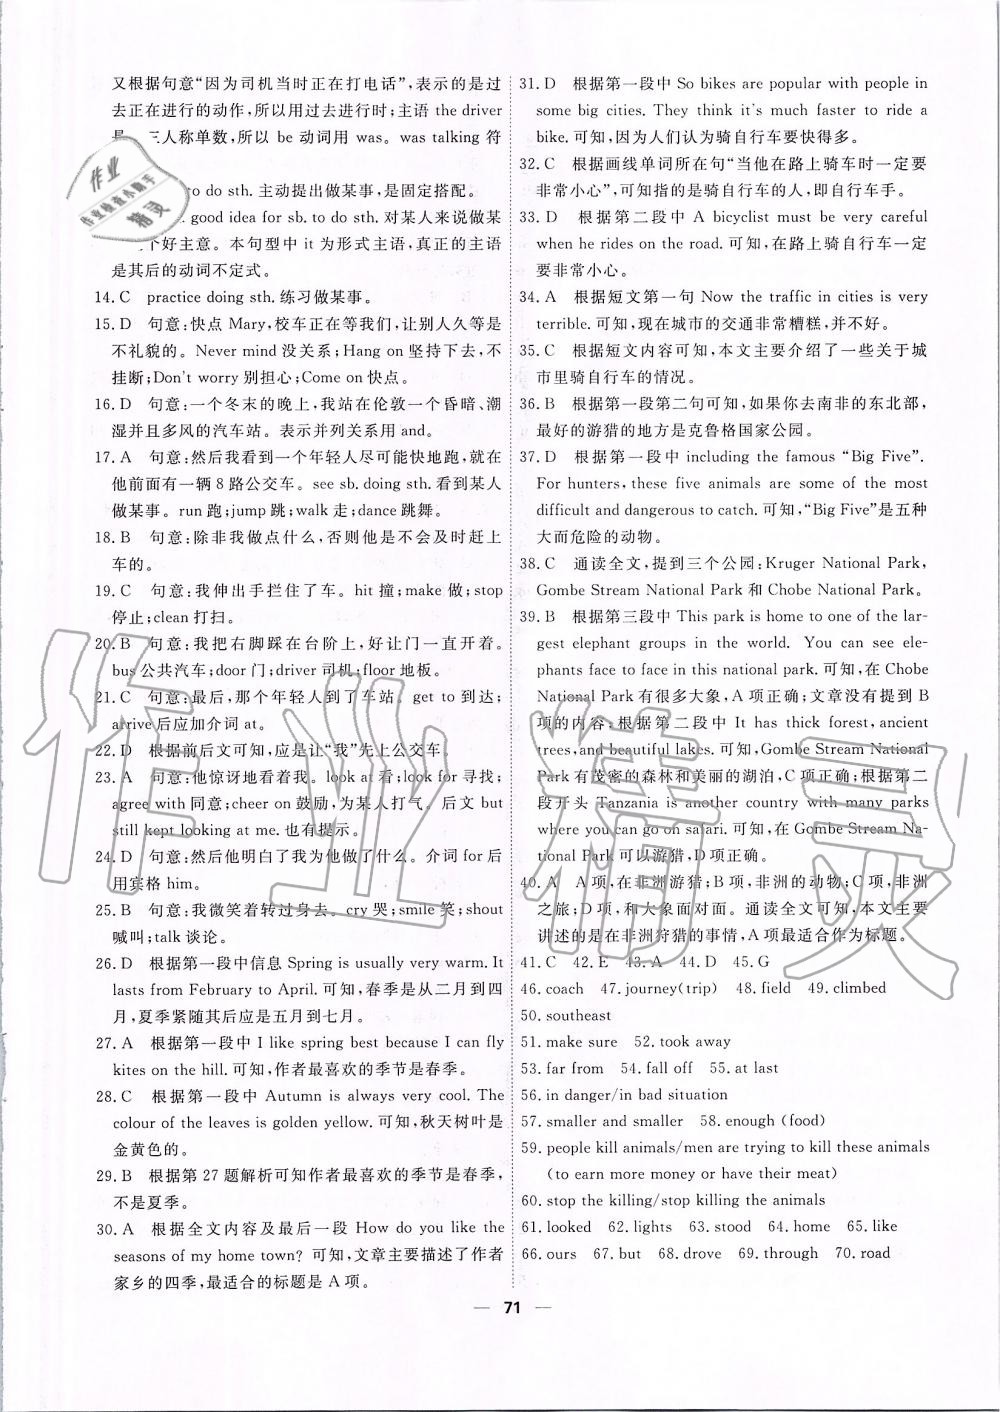 又根据句意“因为司机当时正在打电话”,表示的是过
去正在进行的动作,所以用过去进行时;主语 the driver
三人称单数,所以 be 动词用 was。was talking 符
to do sth. 主动提出做某事,是固定搭配。
good idea for sb. to do sth. 对某人来说做某
个好主意。本句型中 it 为形式主语,真正的主语
是其后的动词不定式。
14. C practice doing sth. 练习做某事。
15. D 句意:快点 Mary,校车正在等我们,让别人久等是
不礼貌的。Never mind 没关系;Hang on 坚持下去,不
挂断;Don't worry 别担心;Come on 快点。
16. D 句意:一个冬末的晚上,我站在伦敦一个昏暗、潮
湿并且多风的汽车站。表示并列关系用 and。
17. A 句意:然后我看到一个年轻人尽可能快地跑,就在
他前面有一辆 8 路公交车。see sb. doing sth. 看到某人
做某事。run 跑;jump 跳;walk 走;dance 跳舞。
18. B 句意:除非我做点什么,否则他是不会及时赶上
车的。
19. C 句意:我伸出手拦住了车。hit 撞;make 做;stop
停止;clean 打扫。
20. B 句意:我把右脚踩在台阶上,好让门一直开着。
bus 公共汽车;door 门;driver 司机;floor 地板。
21. C 句意:最后,那个年轻人到了车站。get to 到达;
arrive 后应加介词 at。
22. D 根据前后文可知,应是让“我”先上公交车。
23. A 句意:他惊讶地看着我。look at 看;look for 寻找;
agree with 同意;cheer on 鼓励,为某人打气。后文 but
still kept looking at me. 也有提示。
24. D 句意:然后他明白了我为他做了什么。介词 for 后
用宾格 him。
25. B 句意:我微笑着转过身去。cry 哭;smile 笑;shout
喊叫;talk 谈论。
26. D 根据第一段中信息 Spring is usually very warm. It
lasts from February to April. 可知,春季是从二月到四
月,夏季紧随其后应是五月到七月。
27. A 根据第一段中 I like spring best because I can fly
kites on the hill. 可知,作者最喜欢的季节是春季。
28. C 根据第一段中 Autumn is always very cool. The
colour of the leaves is golden yellow. 可知,秋天树叶是
金黄色的。
29. B 根据第 27 题解析可知作者最喜欢的季节是春季,
不是夏季。
30. A 根据全文内容及最后一段 How do you like the
seasons of my home town? 可知,文章主要描述了作者
家乡的四季,最适合的标题是 A 项。
31. D 根据第一段中 So bikes are popular with people in
some big cities. They think it's much faster to ride a
bike. 可知,因为人们认为骑自行车要快得多。
32. C 根据画线单词所在句“当他在路上骑车时一定要
非常小心”,可知指的是骑自行车的人,即自行车手。
33. D 根据第二段中 A bicyclist must be very careful
when he rides on the road. 可知,在路上骑自行车一定
要非常小心。
34. A 根据短文第一句 Now the traffic in cities is very
terrible. 可知,现在城市的交通非常糟糕,并不好。
35. C 根据短文内容可知,本文主要介绍了一些关于城
市里骑自行车的情况。
36. B 根据第一段第二句可知,如果你去南非的东北部,
最好的游猎的地方是克鲁格国家公园。
37. D 根据第一段中 including the famous “Big Five”.
For hunters, these five animals are some of the most
difficult and dangerous to catch. 可知,“Big Five”是五种
大而危险的动物。
38. C 通读全文,提到三个公园:Kruger National Park,
Gombe Stream National Park 和 Chobe National Park。
39. B 根据第三段中 This park is home to one of the lar-
gest elephant groups in the world. You can see ele-
phants face to face in this national park. 可知,在 Chobe
National Park 有很多大象,A 项正确;文章没有提到 B
项的内容;根据第二段中 It has thick forest, ancient
trees, and beautiful lakes. 可知,Gombe Stream National
Park 有茂密的森林和美丽的湖泊,C 项正确;根据第二
段开头 Tanzania is another country with many parks
where you can go on safari. 可知,在 Gombe Stream Na-
tional Park 可以游猎,D 项正确。
40. A A 项,在非洲游猎;B 项,非洲的动物;C 项,非洲
之旅;D 项,和大象面对面。通读全文可知,本文主要
讲述的是在非洲狩猎的事情,A 项最适合作为标题。
41. C 42. E 43. A 44. D 45. G
46. coach 47. journey(trip) 48. field 49. climbed
50. southeast
51. make sure 52. took away
53. far from 54. fall off 55. at last
56. in danger/in bad situation
57. smaller and smaller 58. enough (food)
59. people kill animals/men are trying to kill these animals
(to earn more money or have their meat)
60. stop the killing/stop killing the animals
61. looked 62. lights 63. stood 64. home 65. like
66. ours 67. but 68. drove 69. through 70. road
— 71 —
作业
作业检查小助手
精灵
作业精灵